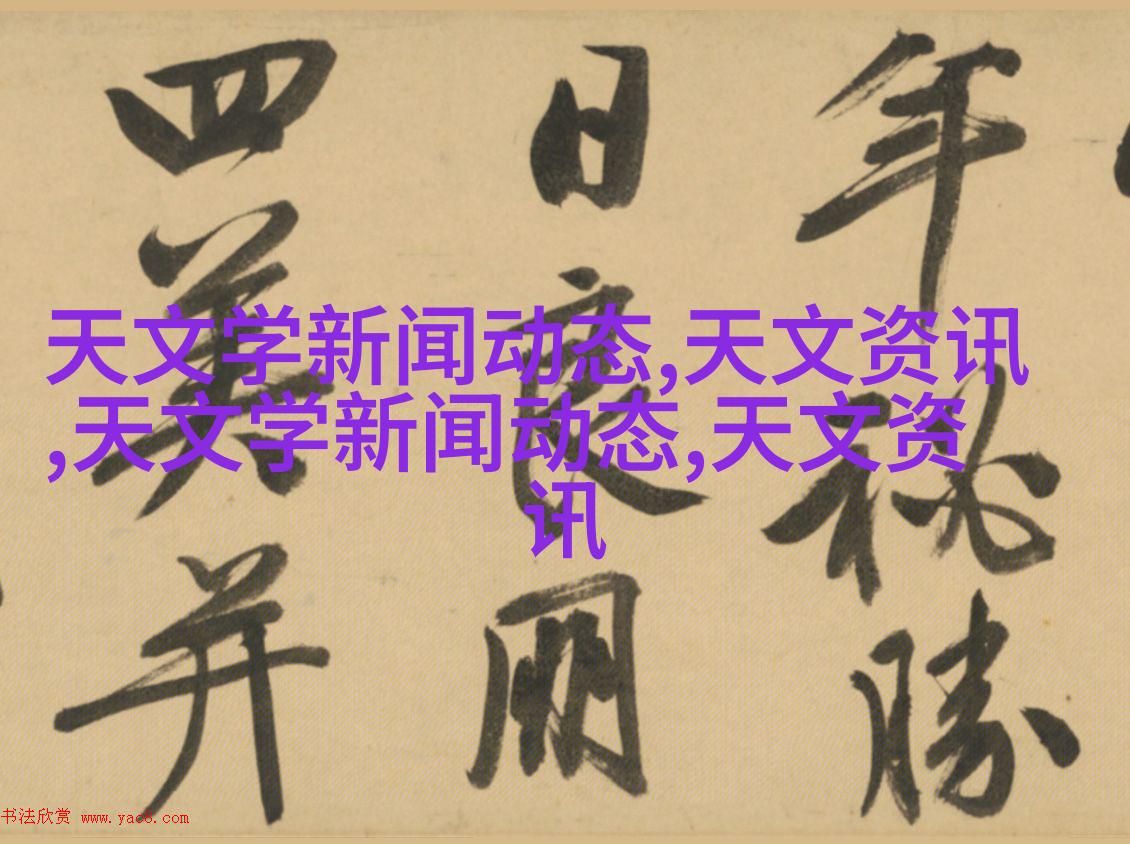 年秘勝
日良朋
四美并
天文学新闻动态,天文资讯
,天文学新闻动态,天文资
讯
书法欣赏 www.yac8.com